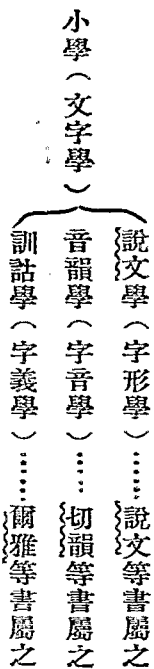 小學（文字學）
說文學（字形學）……說文等書屬之
音韻學（字音學）……切韻等書屬之
訓詁學（字義學）……爾雅等書屬之